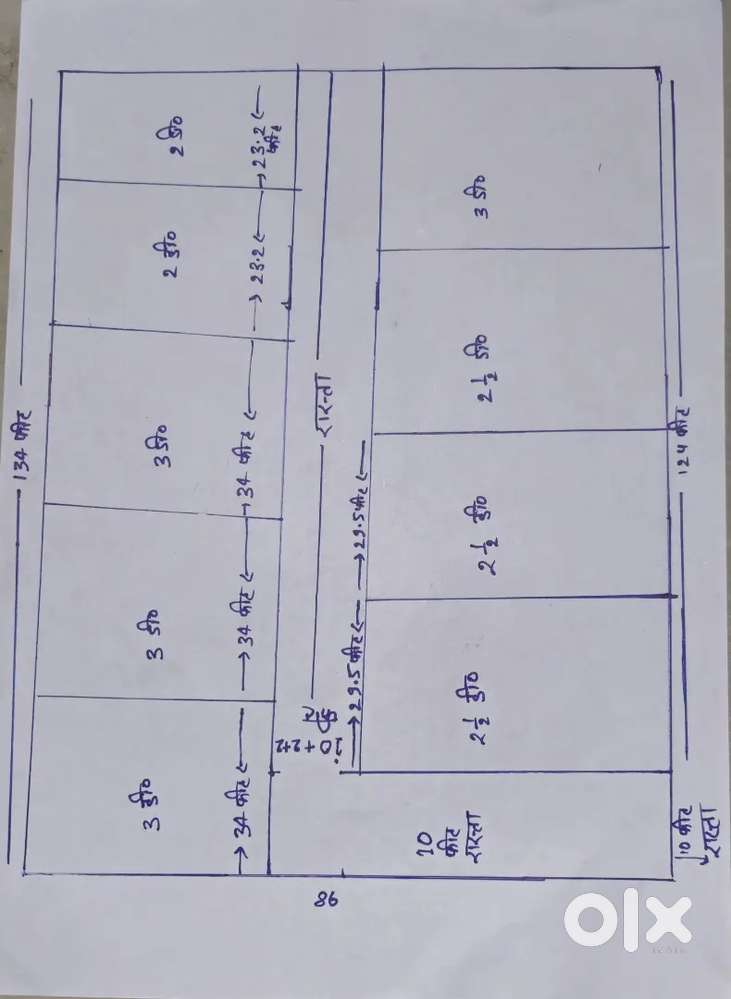 134 फीट
2 डी०
→ 23.2 ←
फीट
2 डी०
→ 23.2 ←
3 डी०
→ 34 फीट ←
3 डी०
→ 34 फीट ←
3 डी०
→ 34 फीट ←
रास्ता
10 + 2+2
फीट
3 डी०
2 1/2 डी०
2 1/2 डी०
→ 29.5 फीट ←
2 1/2 डी०
→ 29.5 फीट ←
124 फीट
10
फीट
रास्ता
10 फीट
रास्ता
86
olx